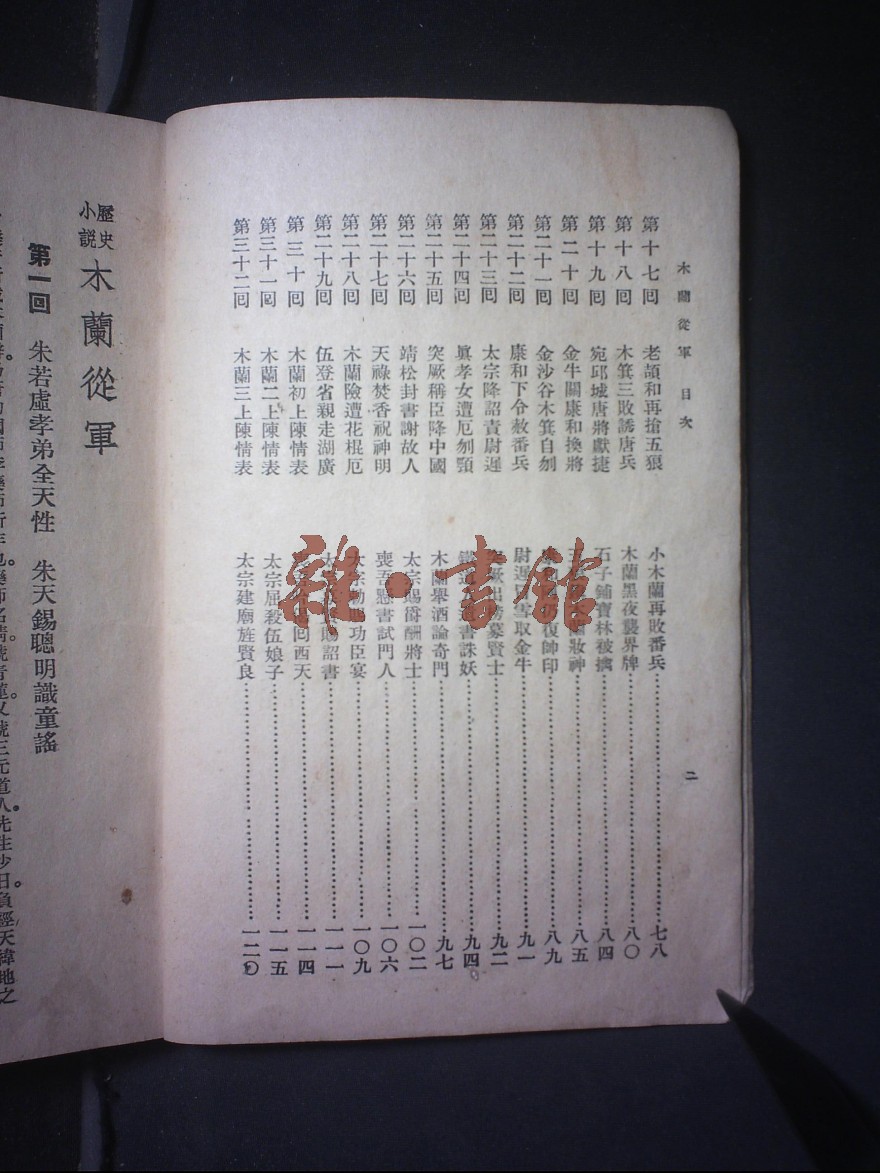 木蘭從軍 目次
二
第十七回 老頡和再搶五狼 小木蘭再敗番兵 七八
第十八回 木箕三敗誘唐兵 木蘭黑夜襲界牌 八〇
第十九回 宛邱城唐將獻捷 石子鋪寶林被擒 八四
第二十回 金牛關康和換將 妝神 八五
第二十一回 金沙谷木箕自刎 復帥印 八九
第二十二回 康和下令赦番兵 尉遲 雪取金牛 九一
第二十三回 太宗降詔責尉遲 出榜募賢士 九二
第二十四回 眞孝女遭厄刎頸 書誅妖 九四
第二十五回 突厥稱臣降中國 木蘭舉酒論奇門 九七
第二十六回 靖松封書謝故人 太宗賜爵酬將士 一〇二
第二十七回 天祿焚香祝神明 喪吾懸書試門人 一〇六
第二十八回 木蘭險遭花棍厄 太宗勅賜功臣宴 一〇九
第二十九回 伍登省親走湖廣 太 賜詔書 一一一
第三十回 木蘭初上陳情表 回西天 一一四
第三十一回 木蘭二上陳情表 太宗屈殺伍娘子 一一五
第三十二回 木蘭三上陳情表 太宗建廟旌賢良 一二〇
歷史小說 木蘭從軍
第一回 朱若虛孝弟全天性 朱天錫聰明識童謠
也。藥師名靖。號青蓮。又號三元道人。先生少日。負經天緯地之
雜·書館